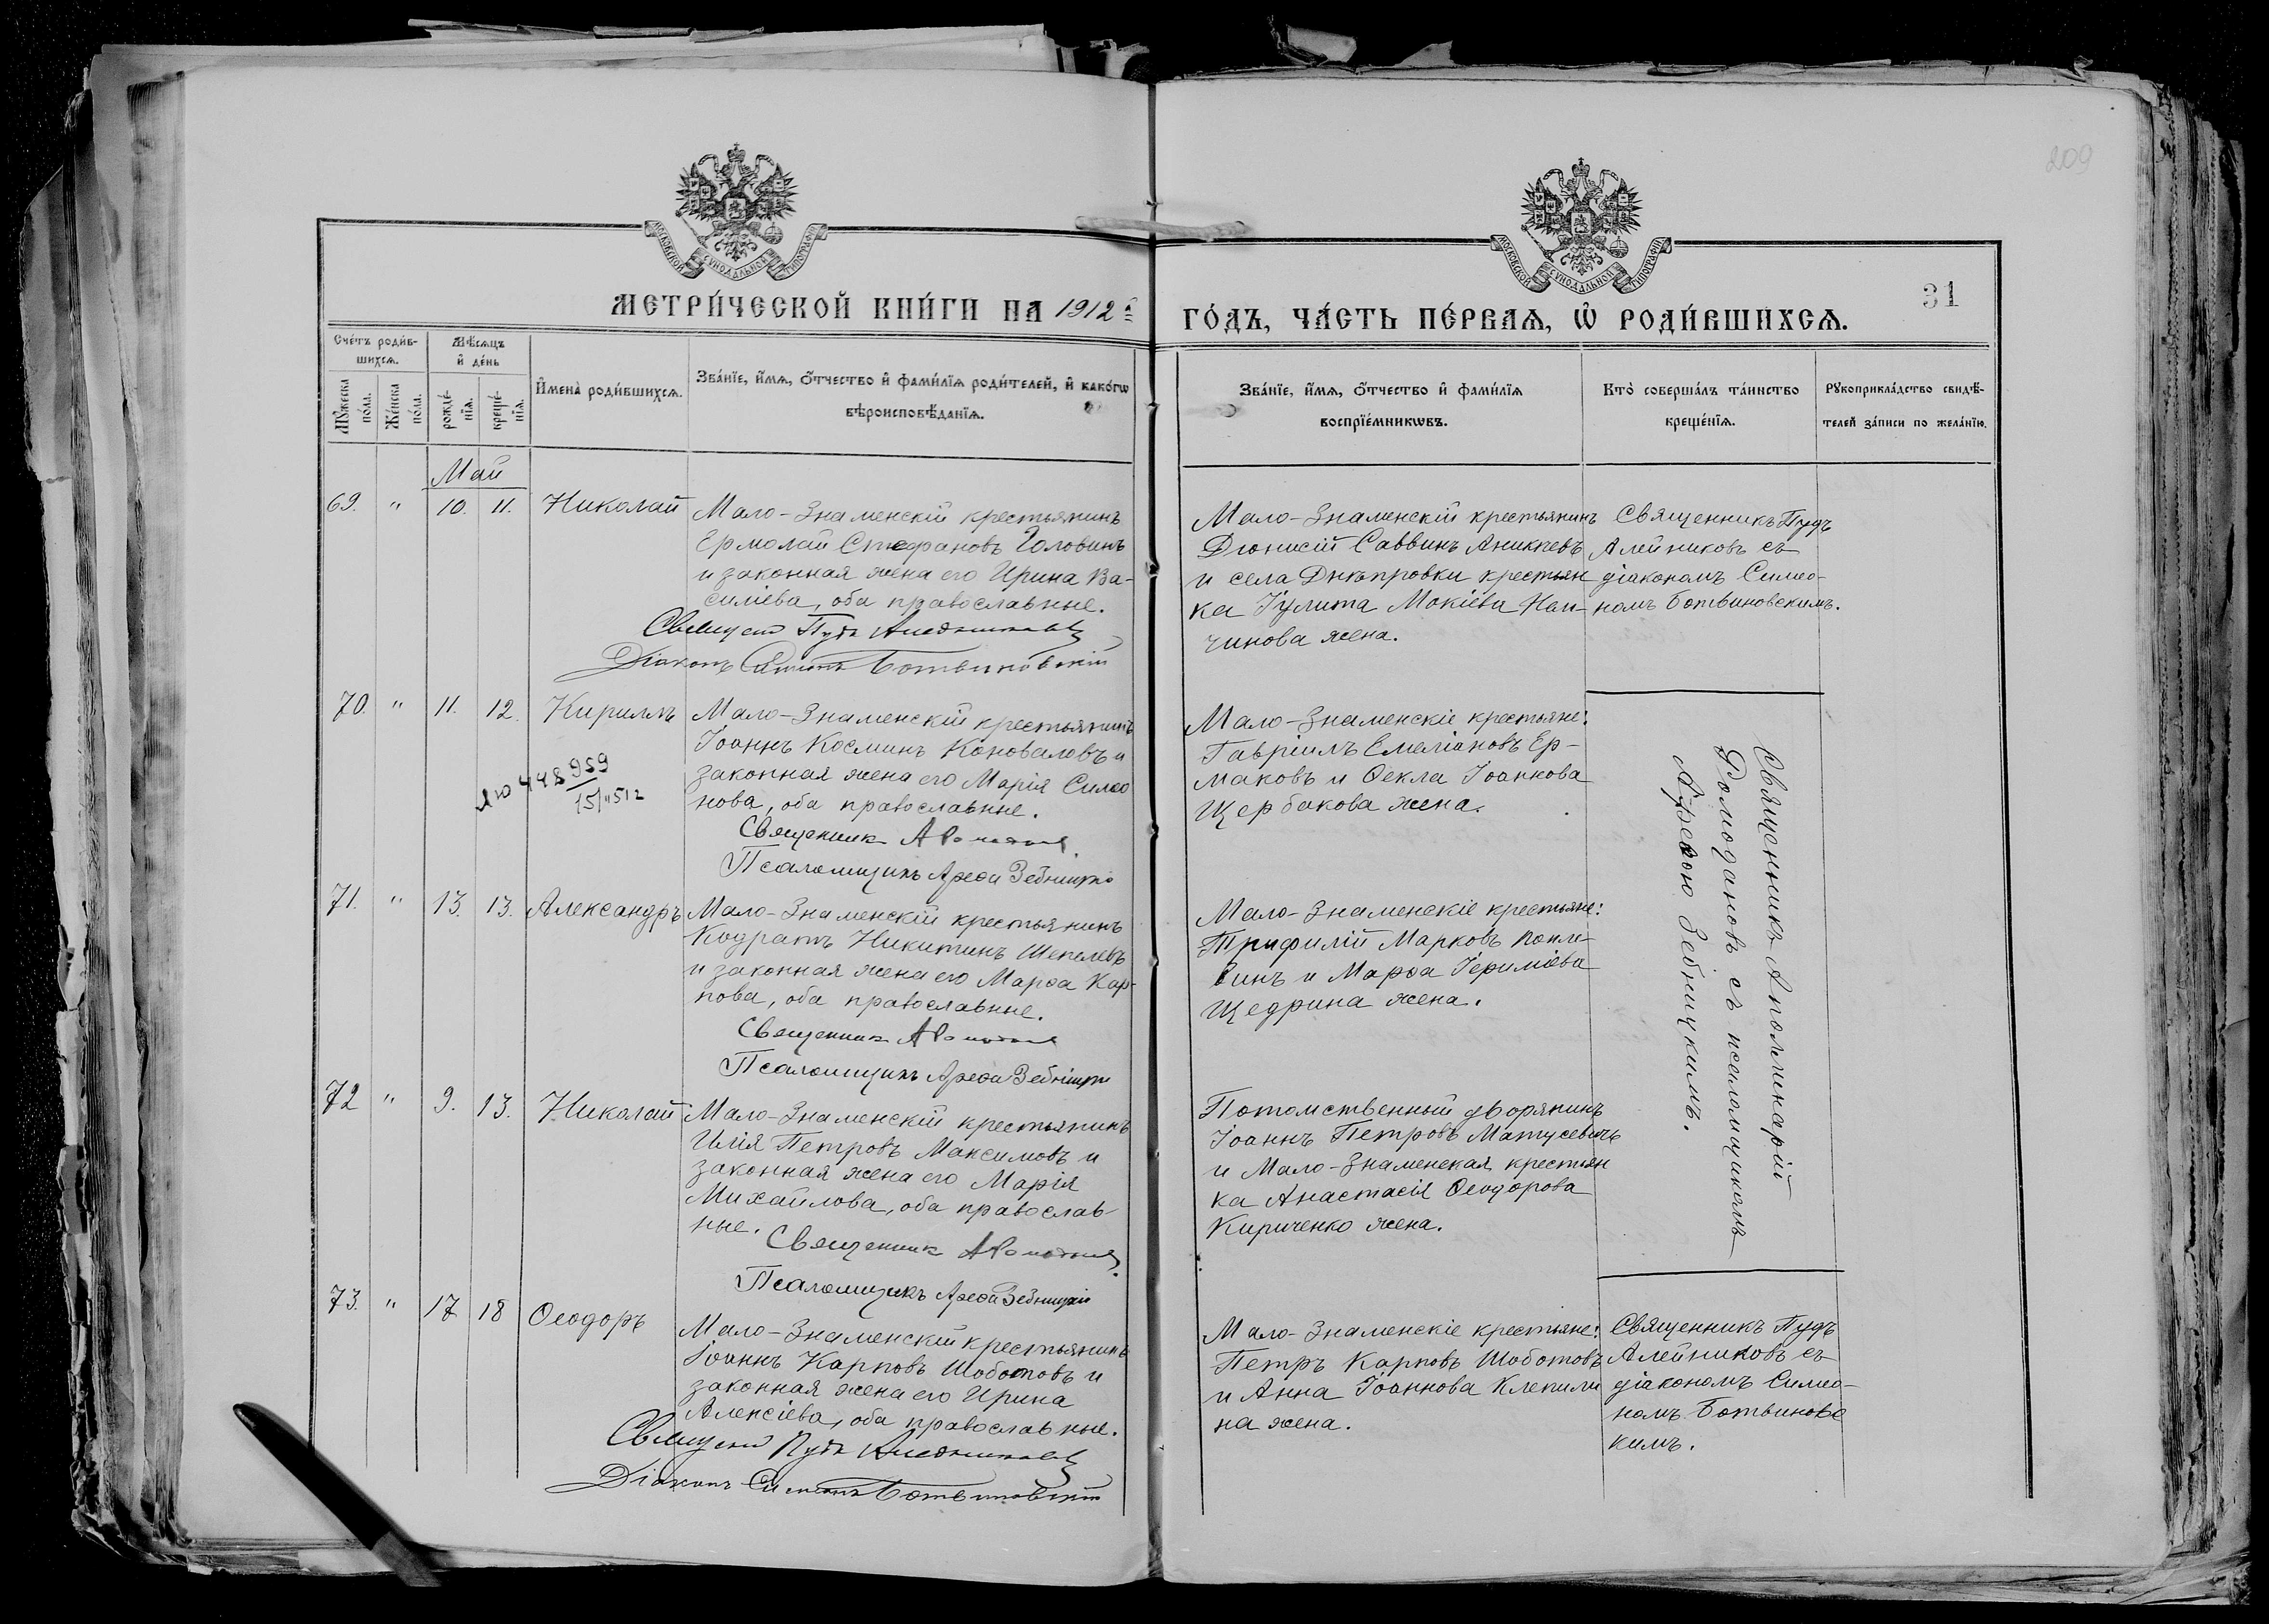 209
МОСКОВСКОЙ СѴНОДАЛЬНОЙ ТИПОГРАФІИ
МОСКОВСКОЙ СѴНОДАЛЬНОЙ ТИПОГРАФІИ
МЕТРИ́ЧЕСКОЙ КНИ́ГИ НА 1912 й
ГО́ДЪ, ЧА́СТЬ ПЕ́РВАѦ, Ѡ҆ РОДИ́ВШИХСѦ.
31
Сче́тъ роди́в-
шихсѧ.
Мѣ́сѧцъ
и҆ де́нь
Мꙋ́жеска
по́ла.
Же́нска
по́ла.
рожде́-
нїѧ.
креще́-
нїѧ.
И҆мена̀ роди́вшихсѧ.
Зва́нїе, и҆́мѧ, ѻ҆́тчество и҆ фами́лїѧ роди́телей, и҆ како́гѡ
вѣроисповѣ́данїѧ.
Зва́нїе, и҆́мѧ, ѻ҆́тчество и҆ фами́лїѧ
воспрїе́мникѡвъ.
Кто̀ соверша́лъ та́инство
креще́нїѧ.
Рꙋкоприкла́дство свидѣ́-
телей за́писи по жела́нїю.
Май
69. " 10. 11. Николай
Мало-Знаменскій крестьянинъ
Ермолай Стефановъ Головинъ
и законная жена его Ирина Ва-
силіева, оба православные.
Священ Пудъ Алейниковъ
Діаконъ Симеонъ Ботвиновскій
Мало-Знаменскій крестьянинъ
Діонисій Саввинъ Аникѣевъ
и села Днѣпровки крестьян
ка Іулита Мокіева
чинова жена.
Священникъ Пудъ
Алейниковъ съ
діакономъ Симео-
номъ Ботвиновскимъ.
70. " 11. 12. Кириллъ
959
15/
Мало-Знаменскій крестьянинъ
Іоаннъ Косминъ Коноваловъ и
законная жена его Марія Симео
нова, оба православные.
Священникъ А
Псаломщикъ Арефа Зебницкій
Мало-Знаменскіе крестьяне:
Гавріилъ Емеліановъ Ер-
маковъ и Ѳекла Іоаннова
Щербакова жена.
Священникъ Аполлинарій
Ромодановъ съ псаломщикомъ
Арефою Зебницкимъ.
71. " 13. 13. Александръ
Мало-Знаменскій крестьянинъ
Кодратъ Никитинъ Шепелевъ
и законная жена его Марѳа Кар-
пова, оба православные.
Священникъ А
Псаломщикъ Арефа Зебницкій
Мало-Знаменскіе крестьяне:
Трифилій Марковъ
винъ и Марѳа Іереміева
Щедрина жена.
72 " 9. 13. Николай
Мало-Знаменскій крестьянинъ
Илія Петровъ Максимовъ и
законная жена его Марія
Михайлова, оба православ-
ные.
Священникъ А
Псаломщикъ Арефа Зебницкій
Потомственный дворянинъ
Іоаннъ Петровъ Матусевичъ
и Мало-Знаменская крестьян
ка Анастасія Ѳеодорова
Кириченко жена.
73. " 17 18 Ѳеодоръ
Мало-Знаменскій крестьянинъ
Іоаннъ Карповъ Шоботовъ и
законная жена его Ирина
Алексіева, оба православные.
Священ Пудъ Алейниковъ
Діаконъ Симеонъ Ботвиновскій
Мало-Знаменскіе крестьяне:
Петръ Карповъ Шоботовъ
и Анна Іоаннова Клепили
на жена.
Священникъ Пудъ
Алейниковъ съ
діакономъ Симео-
номъ Ботвиновс
кимъ.